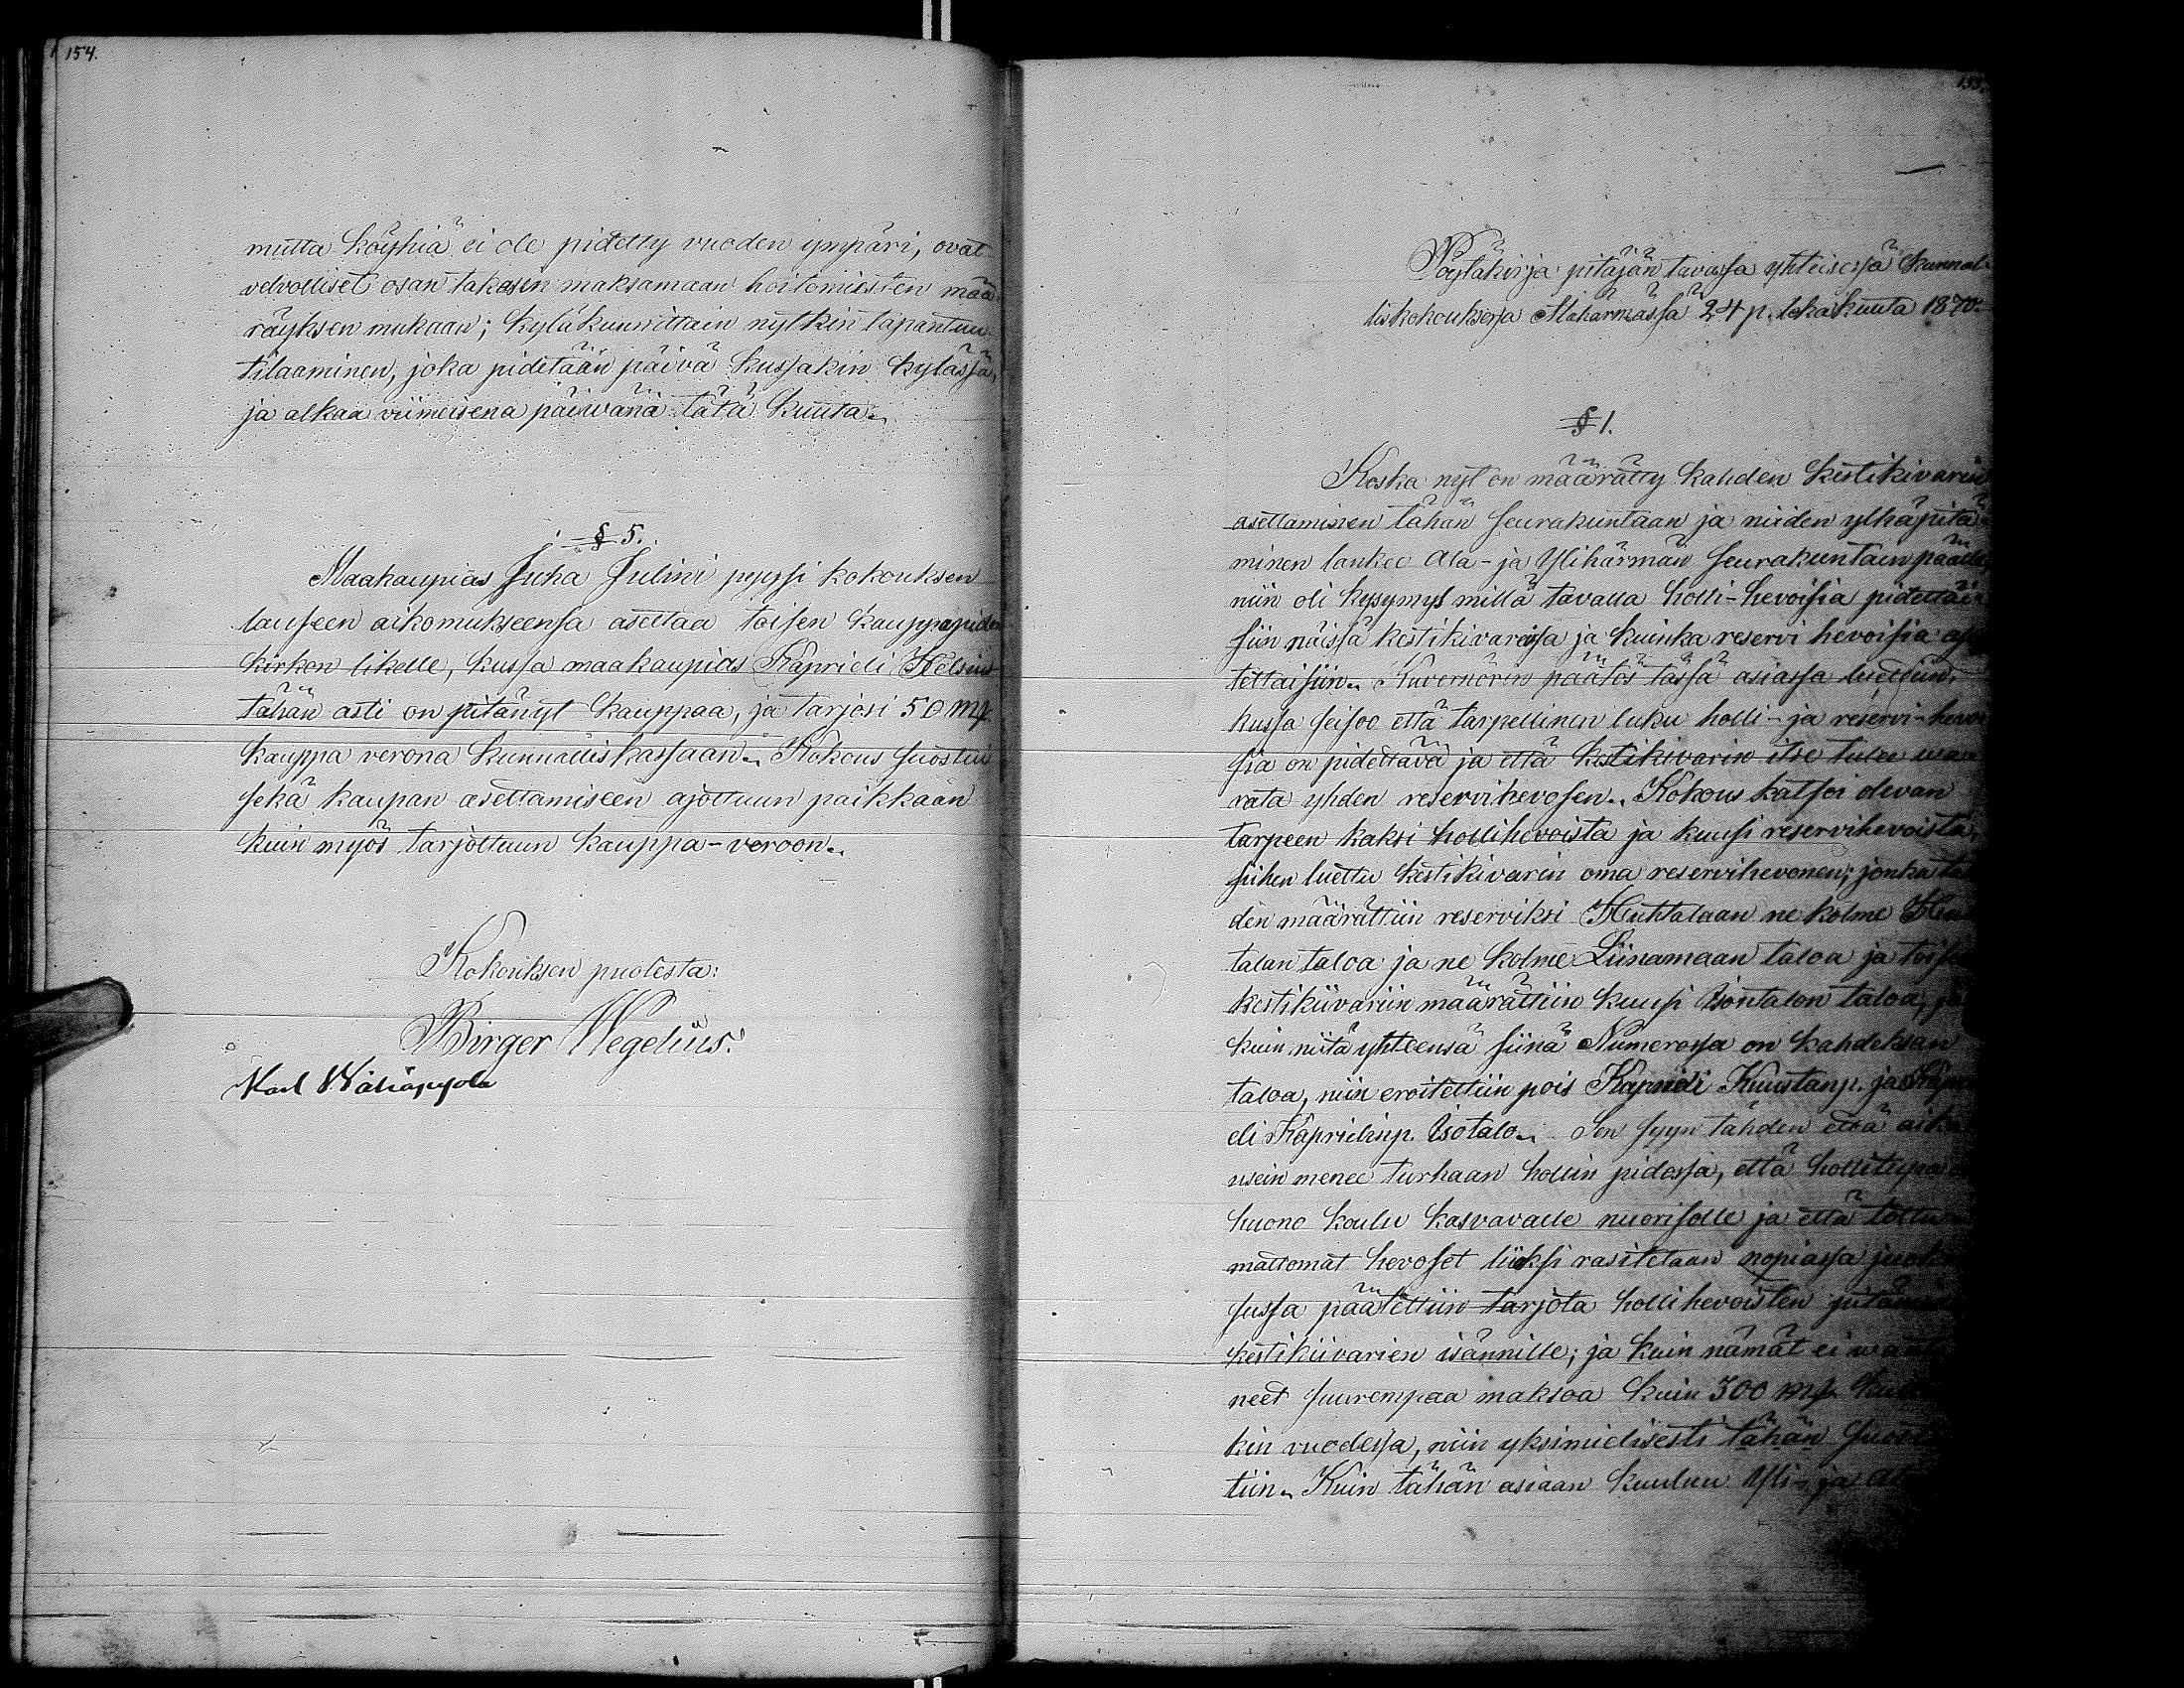 154.
mutta köyhiä ei ole pidetty vuoden ympäri, ovat
velvolliset osan takasin maksamaan hoitomiesten mää-
räyksen mukaan; kyläkunnittain nytkin tapantuu
tilaaminen, joka pidetään päivä kussakin kylässä,
ja alkaa viimeisenä päiwänä tätä kuuta.
§ 5.
Maakaupias Juha Julini pyysi kokouksen
lauseen aikomukseensa asettaa toisen kauppapuidin
kirkon likelle, kussa maakaupias Kaprieli Helsing
tähän asti on pitänyt kauppaa, ja tarjosi 50 mk
kauppa verona kunnalliskassaan. Kokous suostui
sekä kaupan asettamiseen ajottuun paikkaan
kuin myös tarjottuun kauppa-veroon.
Kokouksen puolesta:
Birger Wegelius.
Karl Wähäpyola
155.
Pöytäkirja pitäjän tuvassa yhteisessä kunnal-
liskokouksessa Alahärmässä 24 p. lokakuuta 1870.
§ 1.
Koska nyt on määrätty kahden kestikivarin
asettaminen tähän seurakuntaan ja niiden ylhäpitä-
minen lankee Ala- ja Ylihärmän seurakuntain päälle
niin oli kysymys millä tavalla holli-hevoisia pidettäi-
siin näissä kestikivareissa ja kuinka reservi hevoisia ase-
tettaisiin. Kuvernörin päätös tässä asiassa luettiin,
kussa seisoo että tarpellinen luku holli- ja reservi-hevoi
sia on pidettävä ja että kestikivarin itse tulee waa
rata yhden reservihevosen. Kokous katsoi olevan
tarpeen kaksi hollihevoista ja kuusi reservihevoista,
siihen luettu kestikivarin oma reservihevonen; jonka täh
den määrättiin reserviksi Huhtalaan ne kolme Huh
talan taloa ja ne kolme Liinamaan taloa ja toiseen
kestikiivariin määrättiin kuusi Isontalon taloa, ja
kuin niitä yhteensä siinä Numerossa on kahdeksan
taloa, niin eroitettiin pois Kaprieli Kuustanp. ja Kapri
eli Kaprielinp. Isotalo. Sen syyn tähden että aika
usein menee turhaan hollin pidossa, että hollitupa
huono koulu kasvavalle nuorisolle ja että tottu
mattomat hevoset liiksi rasitetaan nopiassa juok
sussa päätettiin tarjota hollihevoisten pitäminen
kestikiivarien isännille; ja kuin nämät ei waat
neet suurempaa maksoa kuin 300 mk kum
kin vuodessa, niin yksimielisesti tähän suost
tiin. Kuin tähän asiaan kuuluu Yli- ja Al